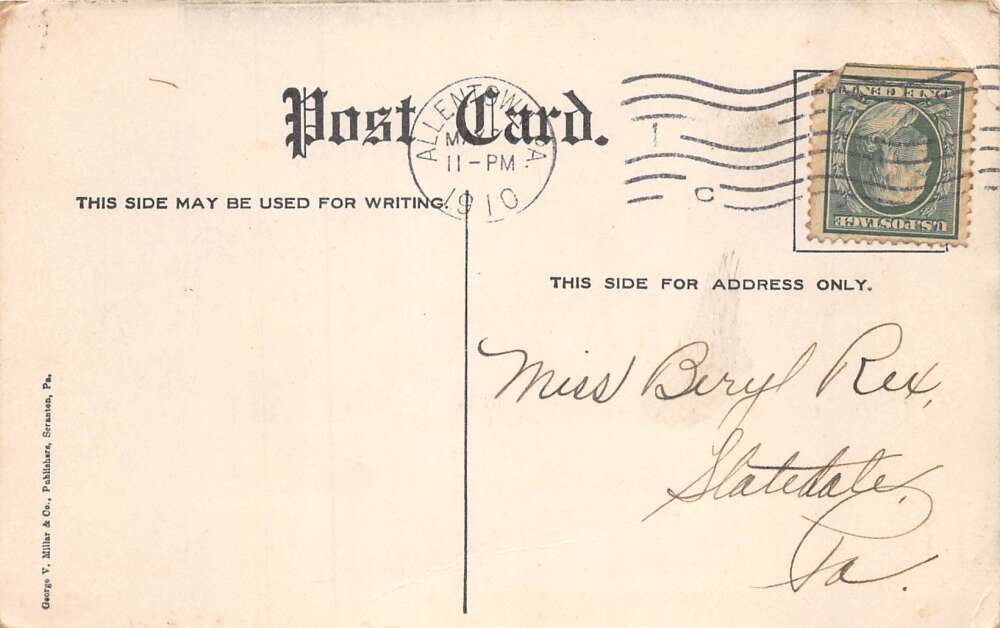 Post Card.
ALLENTOWN, PA.
11-PM
1910
1
C
ONE CENT
U.S. POSTAGE
THIS SIDE MAY BE USED FOR WRITING.
THIS SIDE FOR ADDRESS ONLY.
Miss Beryl Rex,
Slatedale,
Pa.
George V. Millar & Co., Publishers, Scranton, Pa.